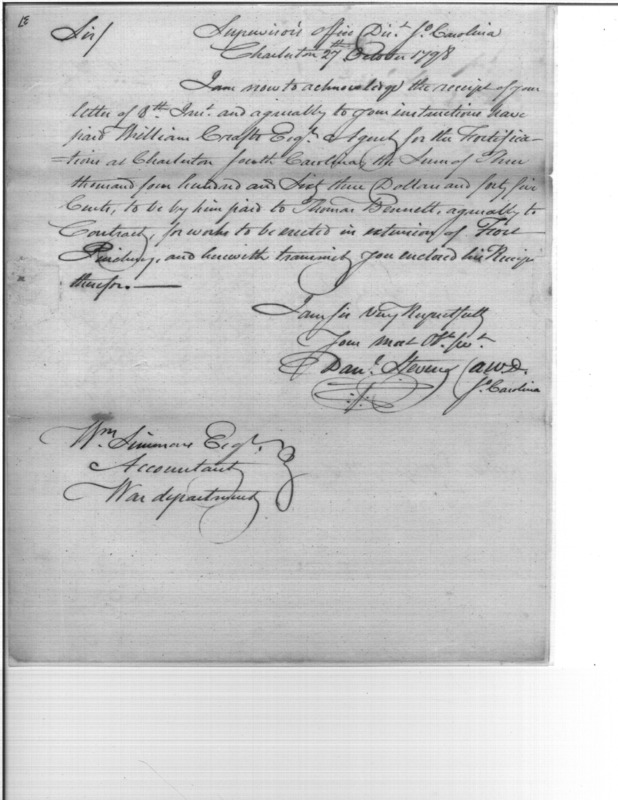 Sir/ Supervisor's office Dist. So. Carolina
Charleston 27th October 1798
I am now to acknowledge the receipt of your
letter of 8th. Inst. and agreeably to your instructions have
paid William Crafts Esqr. Agent for the Fortifica-
=tions at Charleston South Carolina, the Sum of Three
thousand four hundred and Sixty three Dollars and forty five
Cents, to be by him paid to Thomas Bennett, agreeably to
Contract, for works to be erected in extension of Fort
Pinckney, and herewith transmit you enclosed his Receipt
therefor. —
I am Sir very Respectfully
Your most Obt. Sert.
Danl. Stevens
So. Carolina
Wm. Simmons Esqr.
Accountant
War department